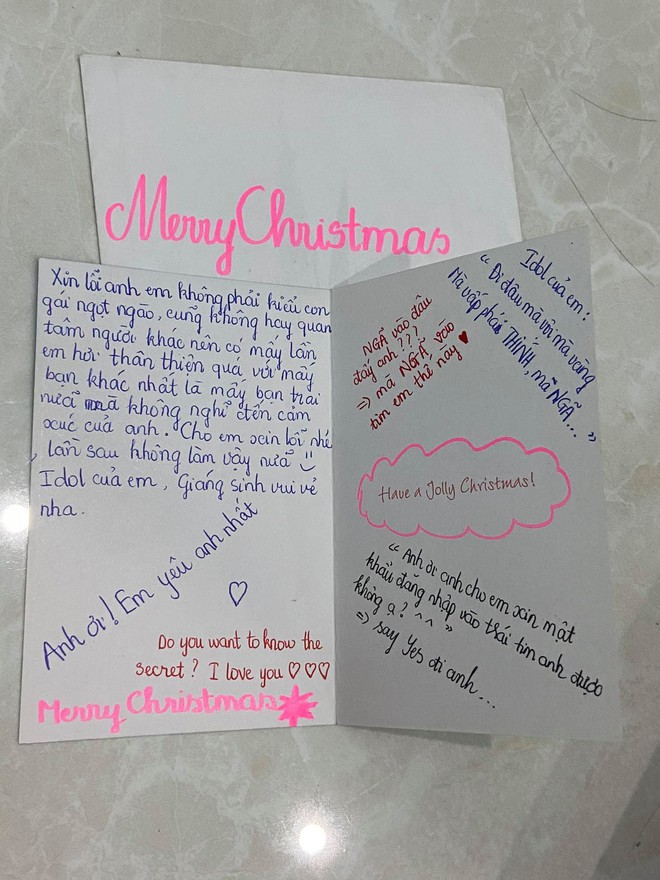 Merry Christmas
Xin lỗi anh em không phải kiểu con
gái ngọt ngào, cũng không hay quan
tâm người khác nên có mấy lần
em hơi thân thiện quá với mấy
bạn khác nhất là mấy bạn trai
nữa mà không nghĩ đến cảm
xúc của anh. Cho em xin lỗi nhé
, lần sau không làm vậy nữa
Idol của em, Giáng sinh vui vẻ
nha.
Anh ơi! Em yêu anh nhất ♡
Do you want to know the
secret? I love you ♡♡♡
Merry Christmas
Idol của em!
“Đi đâu mà vội mà vàng
Mà vấp phải THÍNH, mà NGÃ...”
NGÃ vào đâu
đấy anh???
=> mà NGÃ vào
tim em thế này ♥
Have a Jolly Christmas!
“Anh ơi anh cho em xin mật
khẩu đăng nhập vào trái tim anh được
không ạ? ^^”
=> say Yes đi anh...